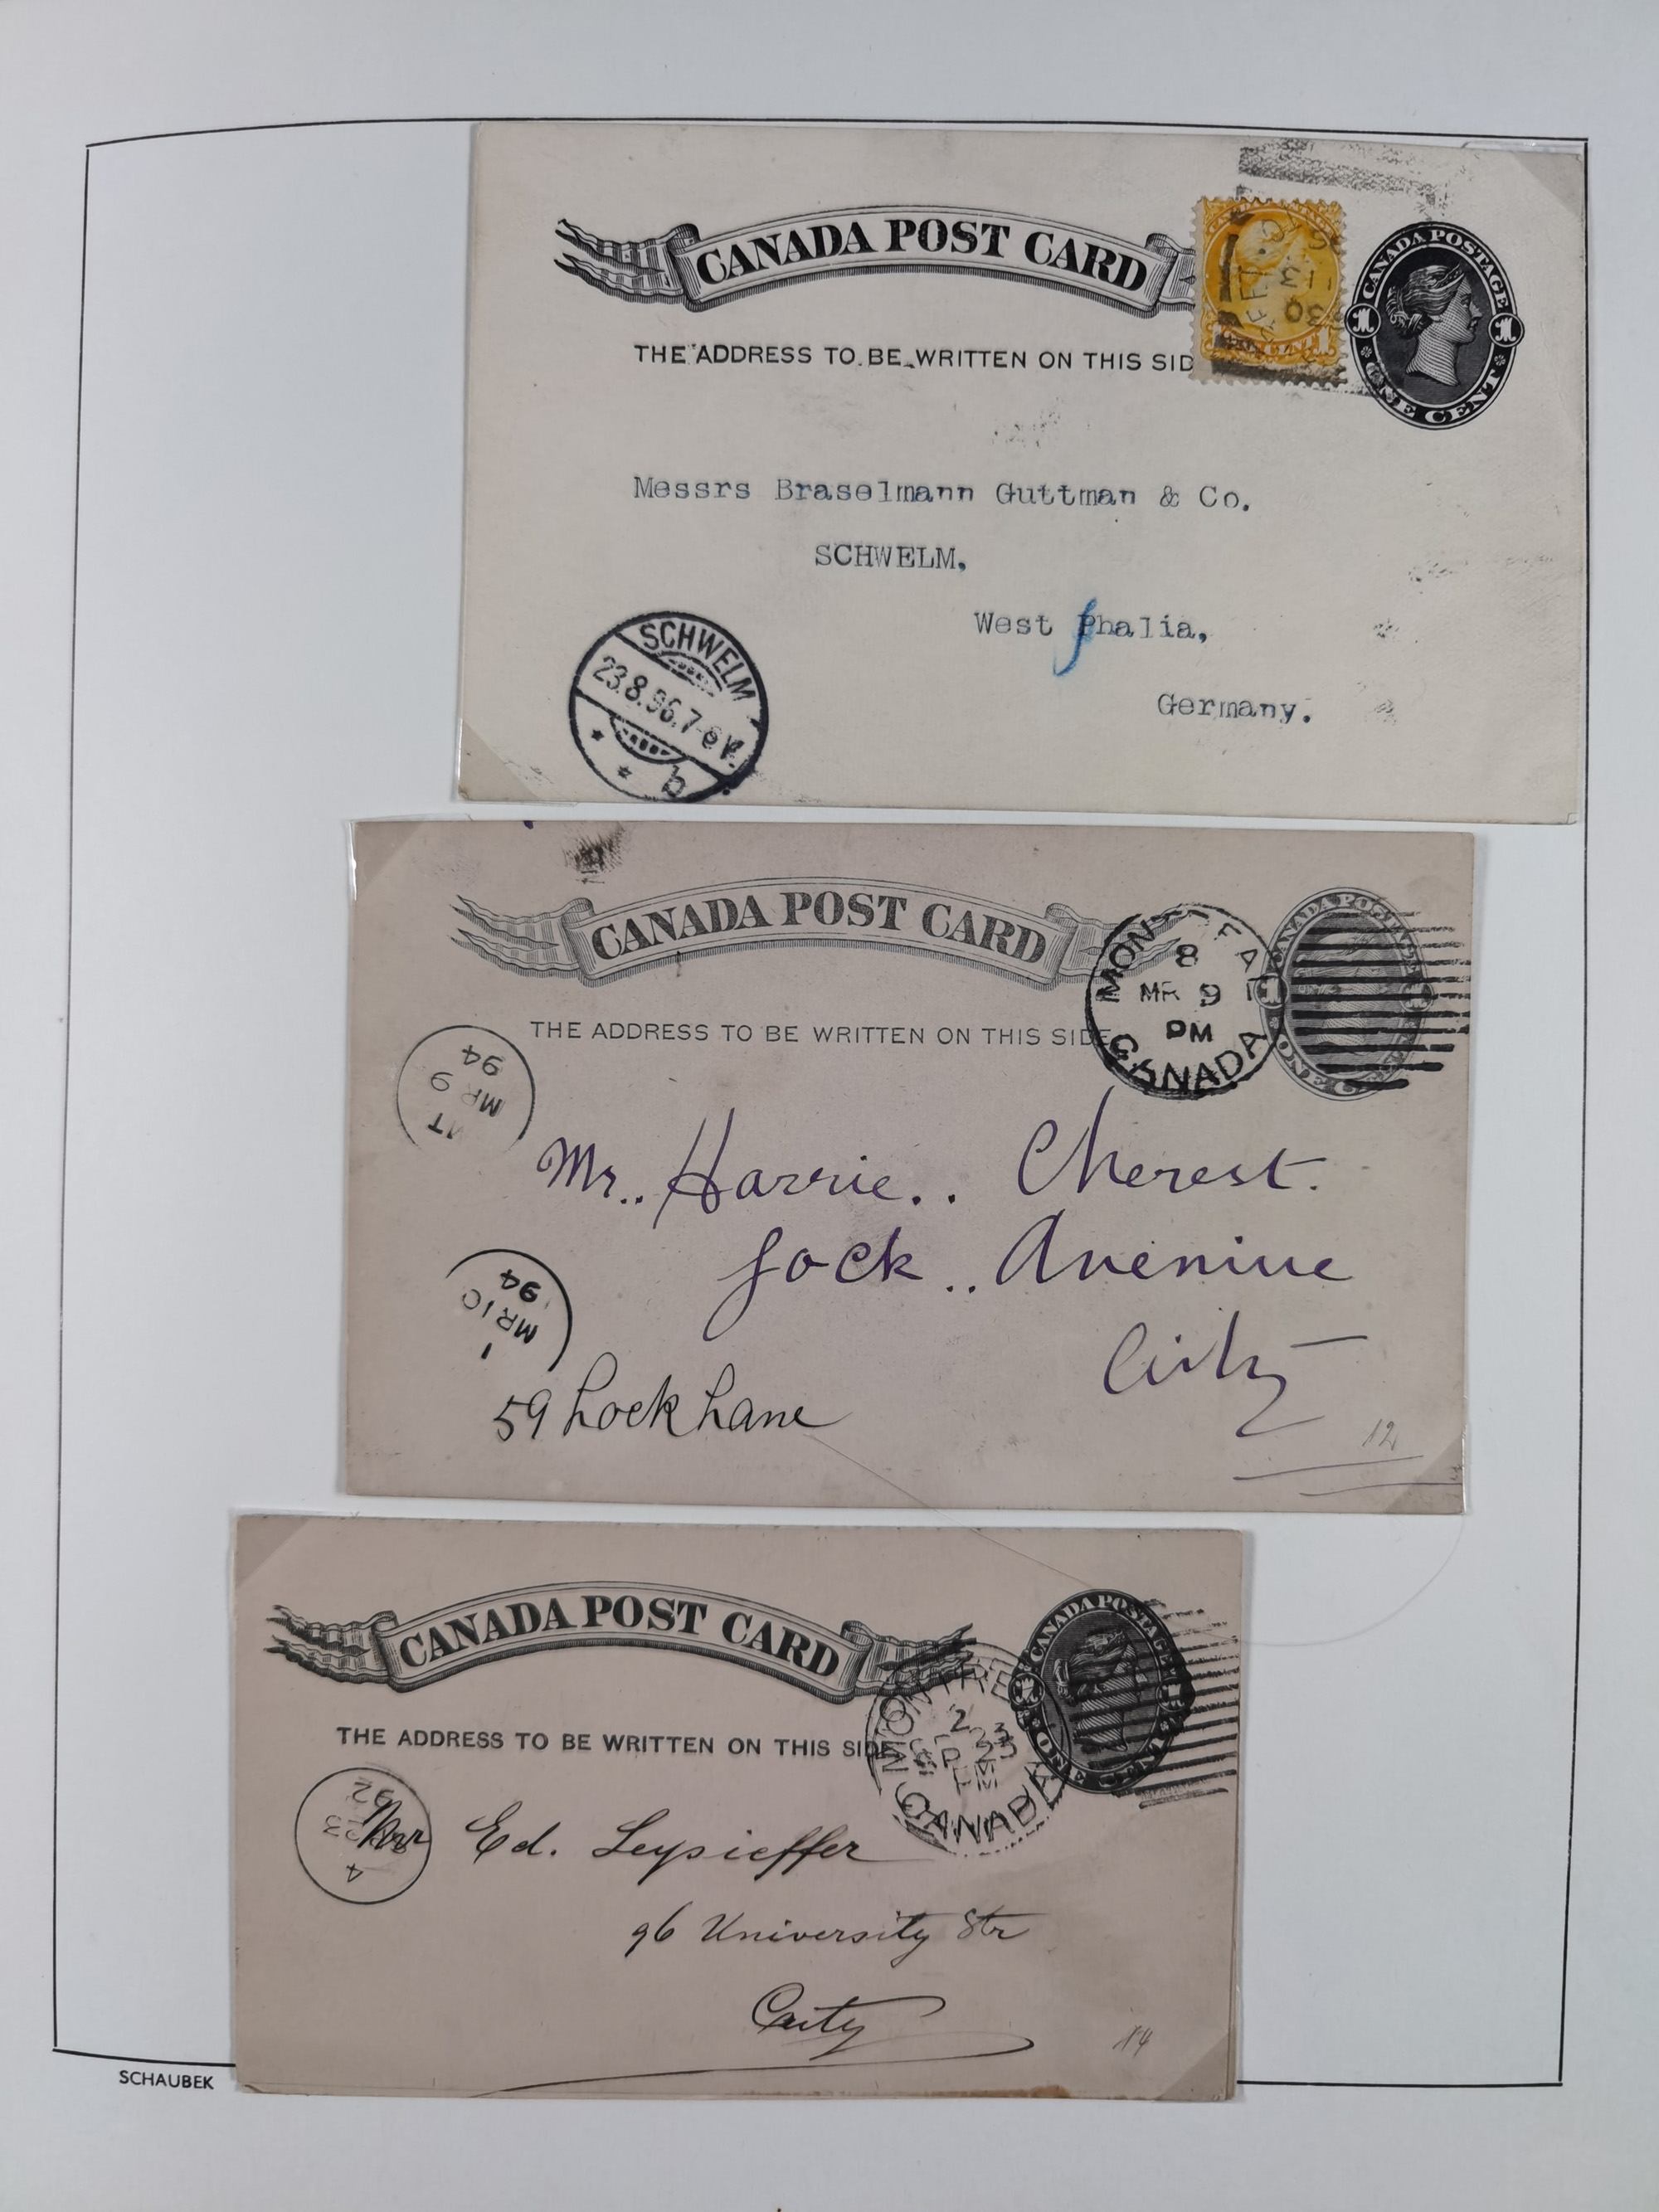 CANADA POST CARD
THE ADDRESS TO BE WRITTEN ON THIS SID
CANADA POSTAGE
1 1
ONE CENT
Messrs Braselmann Guttman & Co.
SCHWELM,
West Phalia,
Germany.
SCHWELM
23.8.96.7-8V.
CANADA POST CARD
THE ADDRESS TO BE WRITTEN ON THIS SIDE
CANADA POSTAGE
8
MR 9
PM
CANADA
MR 9
94
Mr.. Harrie.. Cherest.
Lock.. Aveniue
City
MR 10
94
59 Lock Lane
12
CANADA POST CARD
THE ADDRESS TO BE WRITTEN ON THIS SIDE
CANADA POSTAGE
ONE CENT
MONTRE
CANADA
Ed. Leysieffer
96 University Str
City
14
SCHAUBEK